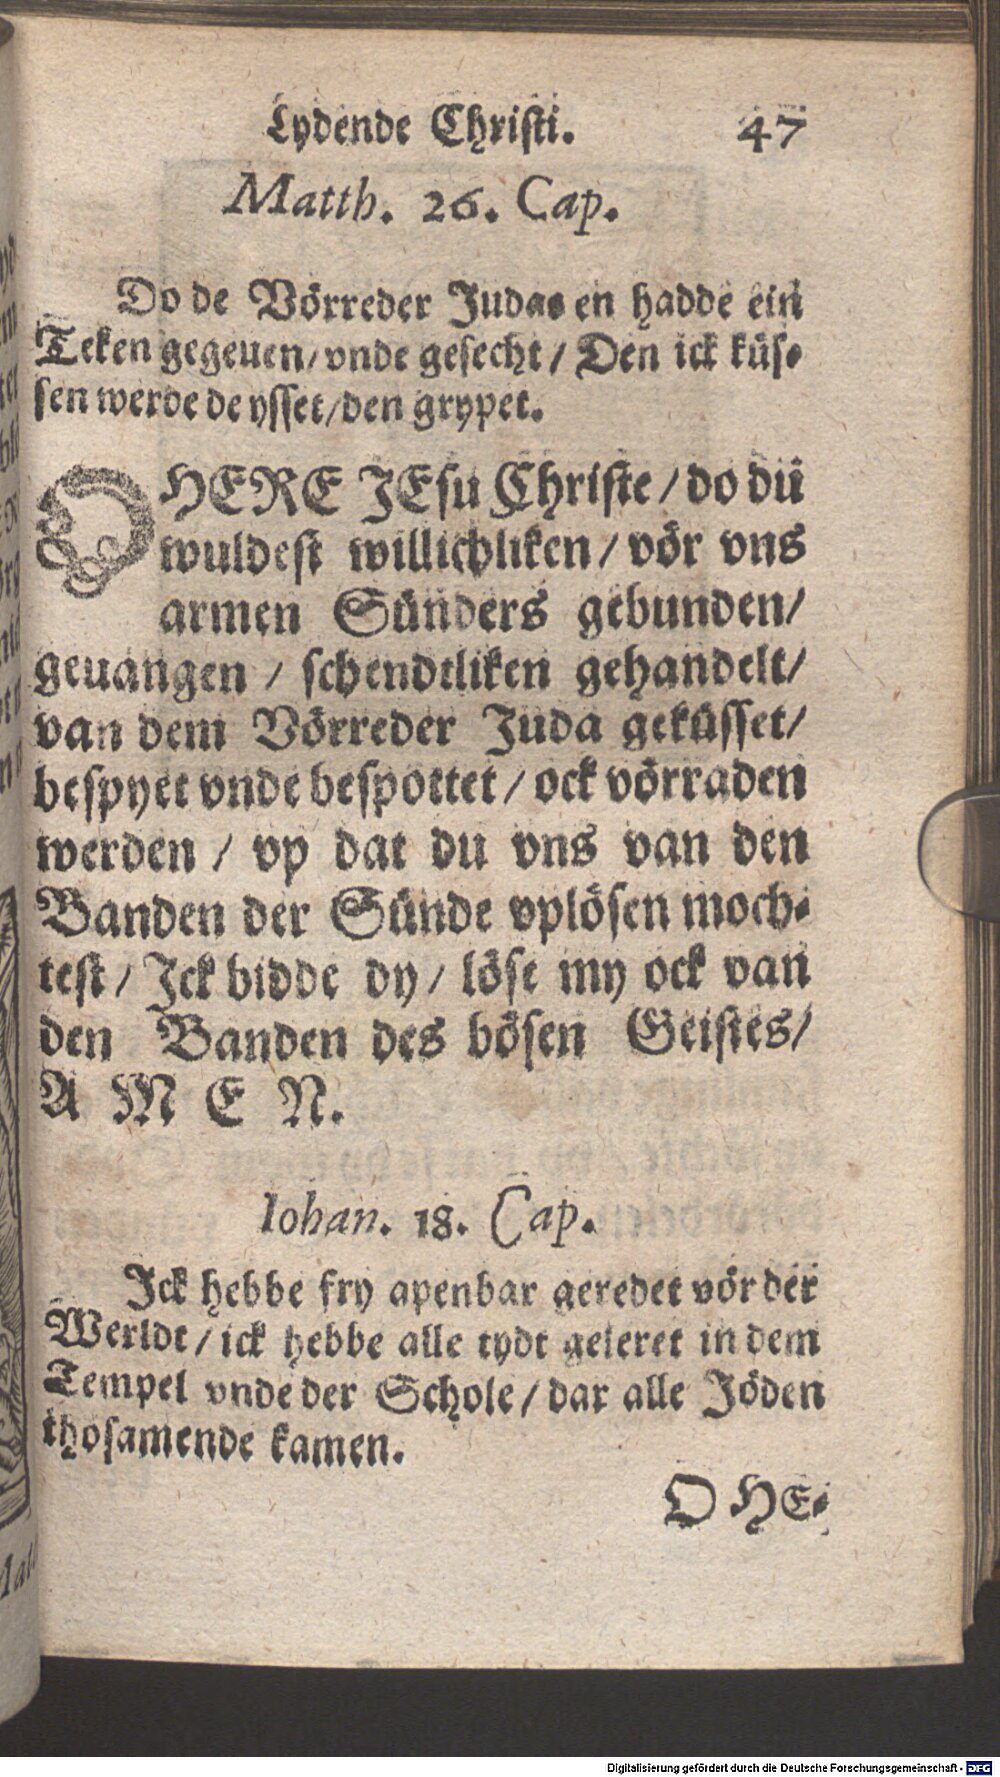 Lydende Christi. 47
Matth. 26. Cap.
Do de Vörreder Judas en hadde ein
Teken gegeuen/ vnde gesecht / Den ick küs-
sen werde de ysset/den grypet.
O HERE JEsu Christe / do dü
wuldest willichliken / vör vns
armen Sünders gebunden/
geuangen / schendtliken gehandelt/
van dem Vörreder Juda geküsset/
bespyet vnde bespottet / ock vörraden
werden / vp dat du vns van den
Banden der Sünde vplösen moch-
test / Jck bidde dy / löse my ock van
den Banden des bösen Geistes/
A M E N.
Iohan. 18. Cap.
Jck hebbe fry apenbar geredet vör der
Werldt / ick hebbe alle tydt geleret in dem
Tempel vnde der Schole / dar alle Jöden
thosamende kamen.
O HE-
Digitalisierung gefördert durch die Deutsche Forschungsgemeinschaft - DFG